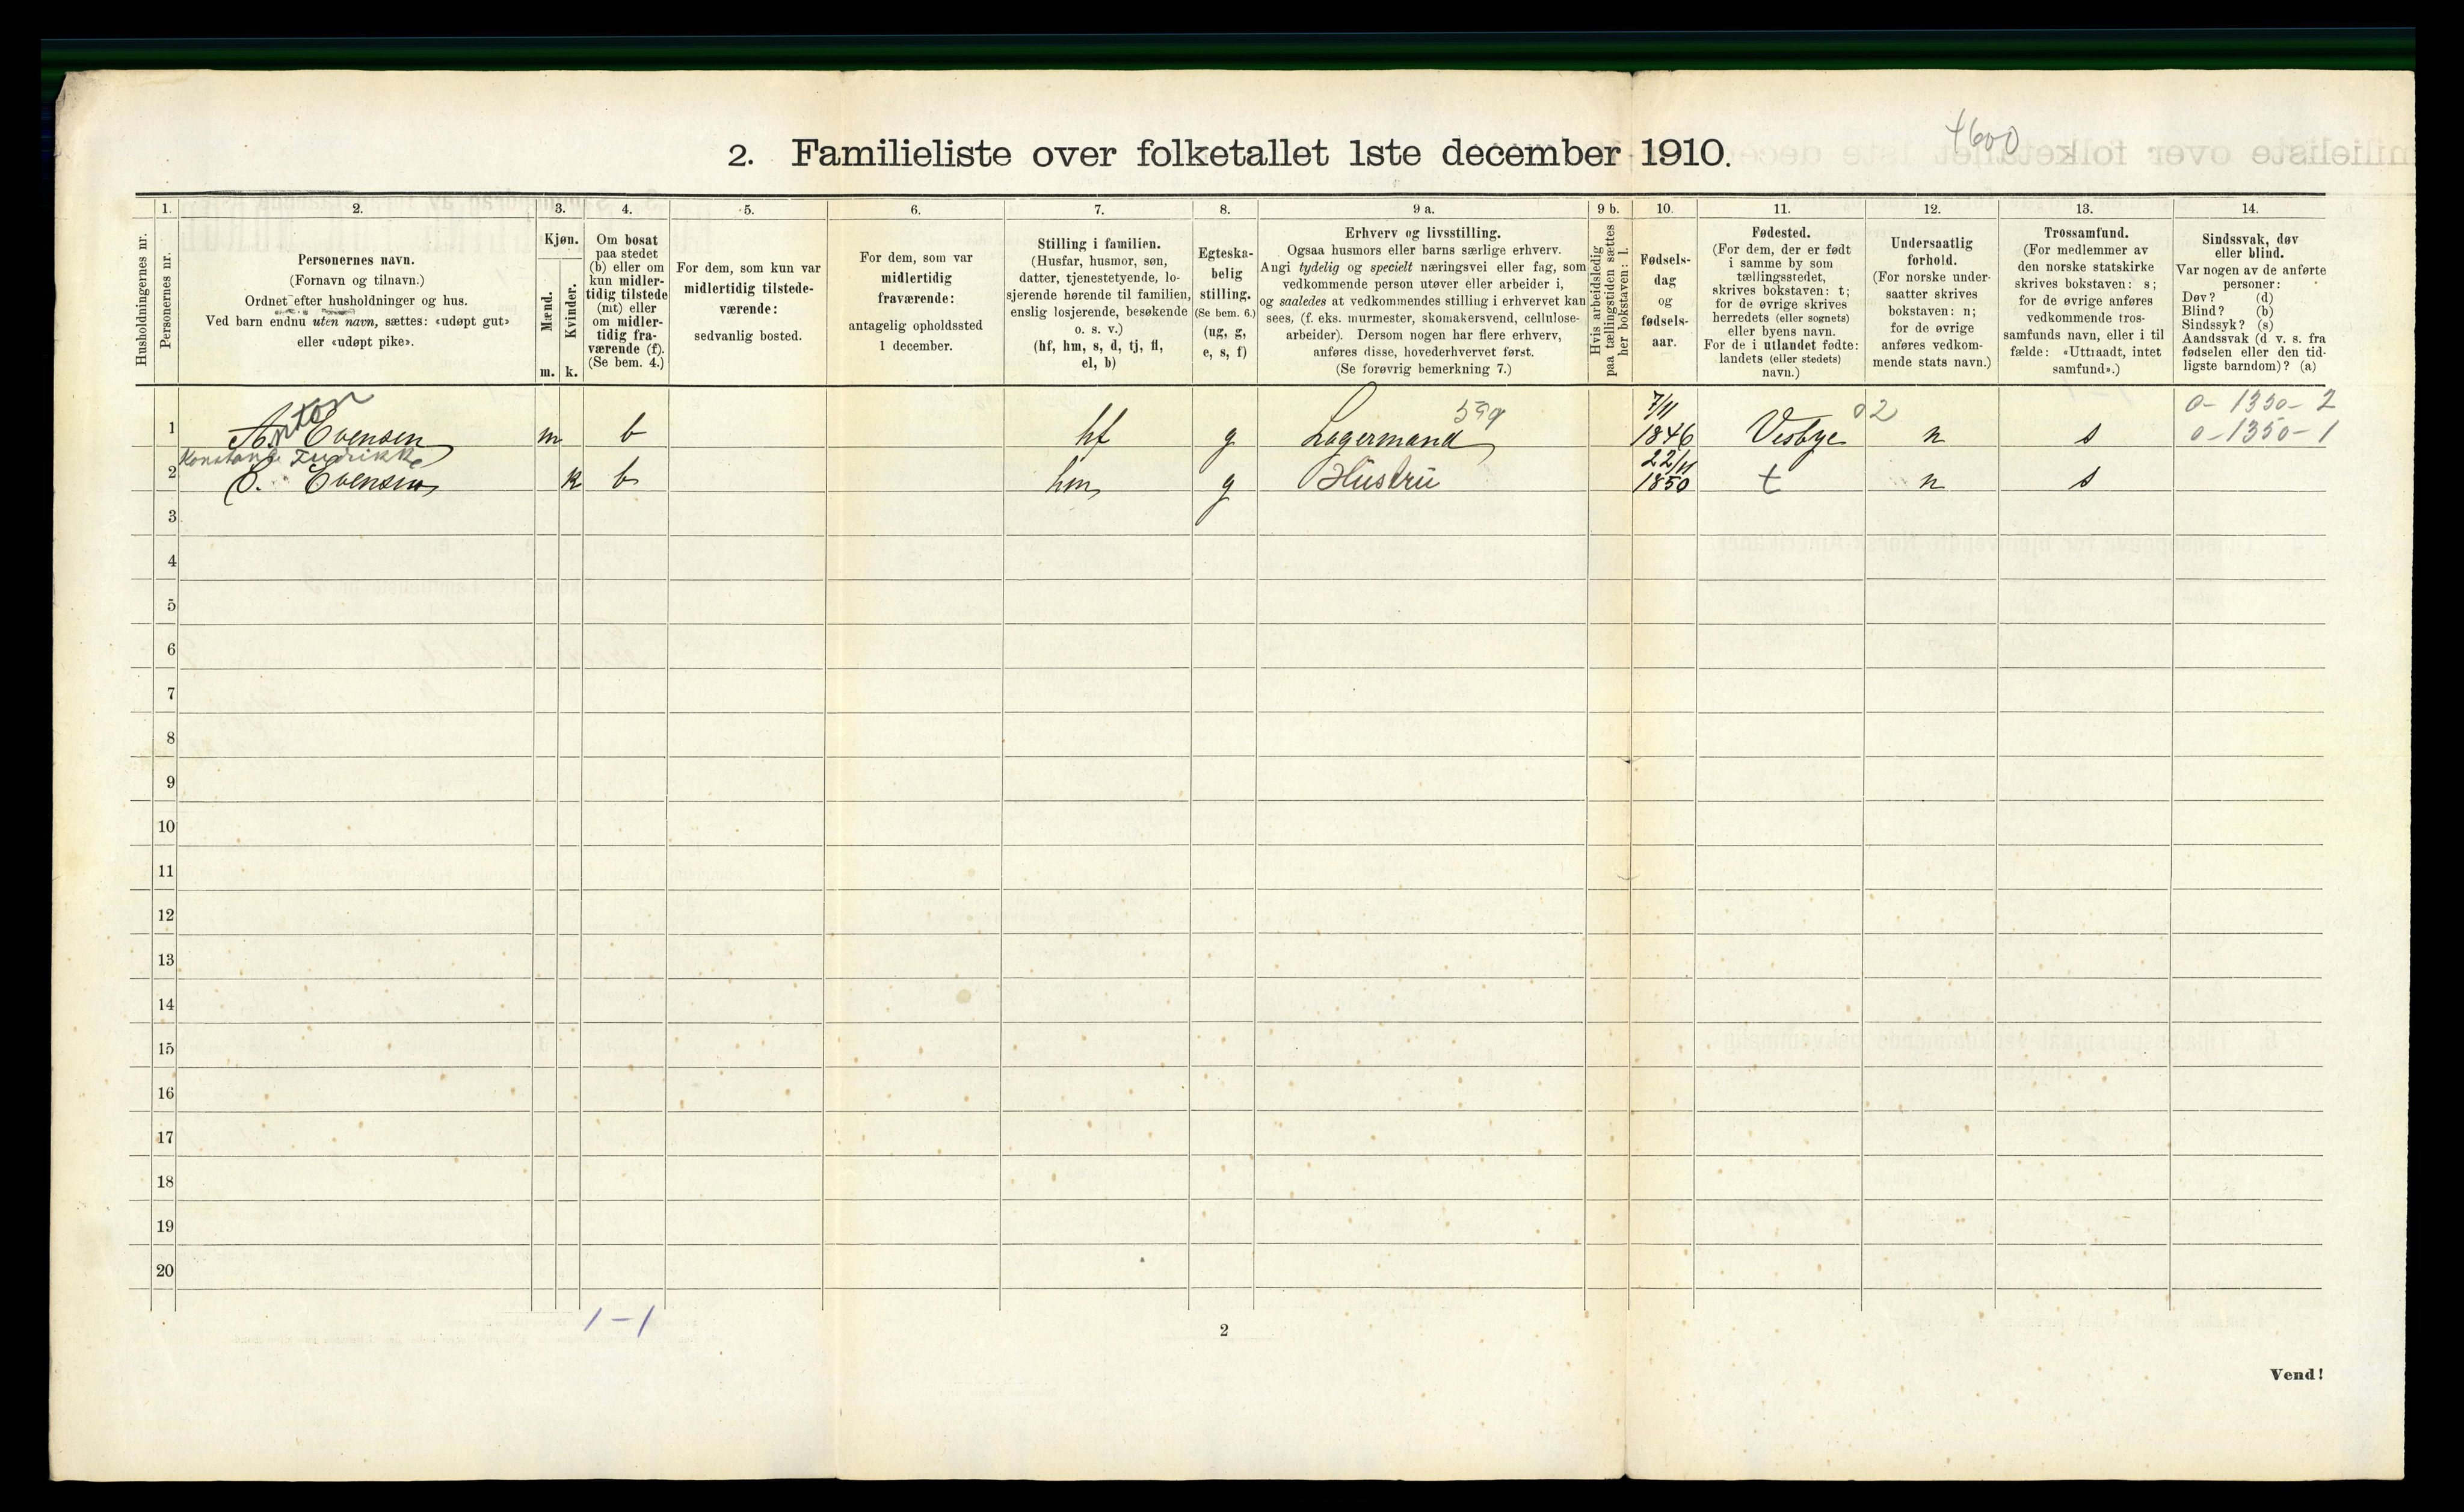 4600
2. Familieliste over folketallet 1ste december 1910.
Husholdningernes nr.
1.
Personernes nr.
2.
Personernes navn.
(Fornavn og tilnavn.)
Ordnet efter husholdninger og hus.
Ved barn endnu uten navn, sættes: «udøpt gut»
eller «udøpt pike».
3.
Kjøn.
Mænd.
Kvinder.
m. k.
4.
Om bosat
paa stedet
(b) eller om
kun midler-
tidig tilstede
(mt) eller
om midler-
tidig fra-
værende (f).
(Se bem. 4.)
5.
For dem, som kun var
midlertidig tilstede-
værende:
sedvanlig bosted.
6.
For dem, som var
midlertidig
fraværende:
antagelig opholdssted
1 december.
7.
Stilling i familien.
(Husfar, husmor, søn,
datter, tjenestetyende, lo-
sjerende hørende til familien,
enslig losjerende, besøkende
o. s. v.)
(hf, hm, s, d, tj, fl,
el, b)
8.
Egteska-
belig
stilling.
(Se bem. 6.)
(ug, g,
e, s, f)
9 a.
Erhverv og livsstilling.
Ogsaa husmors eller barns særlige erhverv.
Angi tydelig og specielt næringsvei eller fag, som
vedkommende person utøver eller arbeider i,
og saaledes at vedkommendes stilling i erhvervet kan
sees, (f. eks. murmester, skomakersvend, cellulose-
arbeider). Dersom nogen har flere erhverv,
anføres disse, hovederhvervet først.
(Se forøvrig bemerkning 7.)
9 b.
Hvis arbeidsledig
paa tællingstiden sættes
her bokstaven: l.
10.
Fødsels-
dag
og
fødsels-
aar.
11.
Fødested.
(For dem, der er født
i samme by som
tællingsstedet,
skrives bokstaven: t;
for de øvrige skrives
herredets (eller sognets)
eller byens navn.
For de i utlandet fødte:
landets (eller stedets)
navn.)
12.
Undersaatlig
forhold.
(For norske under-
saatter skrives
bokstaven: n;
for de øvrige
anføres vedkom-
mende stats navn.)
13.
Trossamfund.
(For medlemmer av
den norske statskirke
skrives bokstaven: s;
for de øvrige anføres
vedkommende tros-
samfunds navn, eller i til
fælde: «Uttraadt, intet
samfund».)
14.
Sindssvak, døv
eller blind.
Var nogen av de anførte
personer:
Døv? (d)
Blind? (b)
Sindssyk? (s)
Aandssvak (d v. s. fra
fødselen eller den tid-
ligste barndom)? (a)
nton 599 7/11 02 0-1350-2
1 A. Evensen m b hf g Lagermand 1846 Vesbye n s 0-1350-1
Konstance Fredrikke 22/11
2 C. Evensen k b hm g Hustru 1850 t n s
3
4
5
6
7
8
9
10
11
12
13
14
15
16
17
18
19
20
1-1
2
Vend!